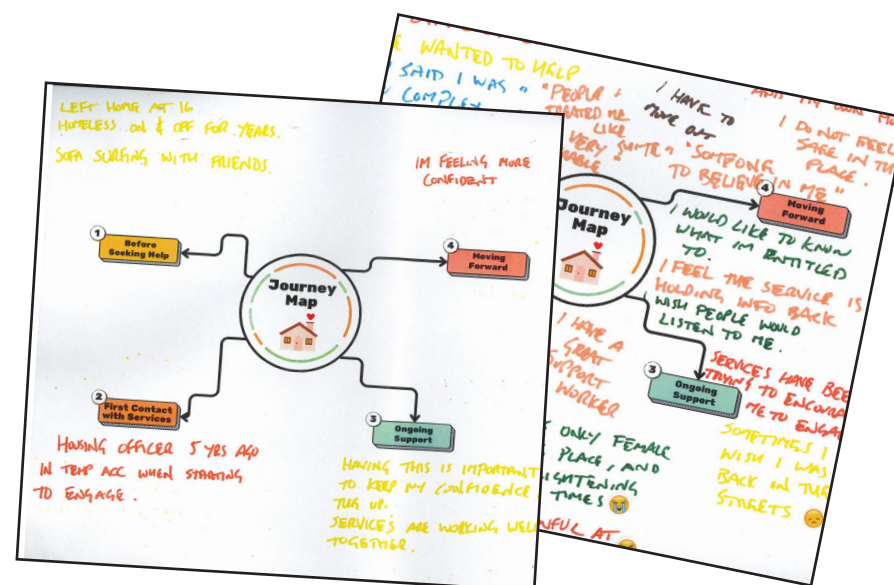 LEFT HOME AT 16
HOMELESS ON & OFF FOR YEARS.
SOFA SURFING WITH FRIENDS.
IM FEELING MORE
CONFIDENT
1
Before
Seeking Help
4
Moving
Forward
Journey
Map
2
First Contact
with Services
3
Ongoing
Support
HOUSING OFFICER 5 YRS AGO
IN TEMP ACC WHEN STARTING
TO ENGAGE.
HAVING THIS IS IMPORTANT
TO KEEP MY CONFIDENCE
UP.
SERVICES ARE WORKING WELL
TOGETHER.
WANTED TO HELP
SAID I WAS "
COMPLEX
"PEOPLE
TREATED ME
LIKE
VERY
"SOMEONE
TO BELIEVE IN ME"
I HAVE TO
MOVE OUT
I DO NOT FEEL
SAFE IN
PLACE.
4
Moving
Forward
Journey
Map
I WOULD LIKE TO KNOW
WHAT IM ENTITLED
TO.
I FEEL THE SERVICE IS
HOLDING INFO BACK
WISH PEOPLE WOULD
LISTEN TO ME.
I HAVE A
GREAT
SUPPORT
WORKER
SERVICES HAVE
TRYING TO
ME TO
3
Ongoing
Support
ONLY FEMALE
PLACE, AND
TIMES
SOMETIMES I
WISH I WAS
BACK ON THE
STREETS
AT